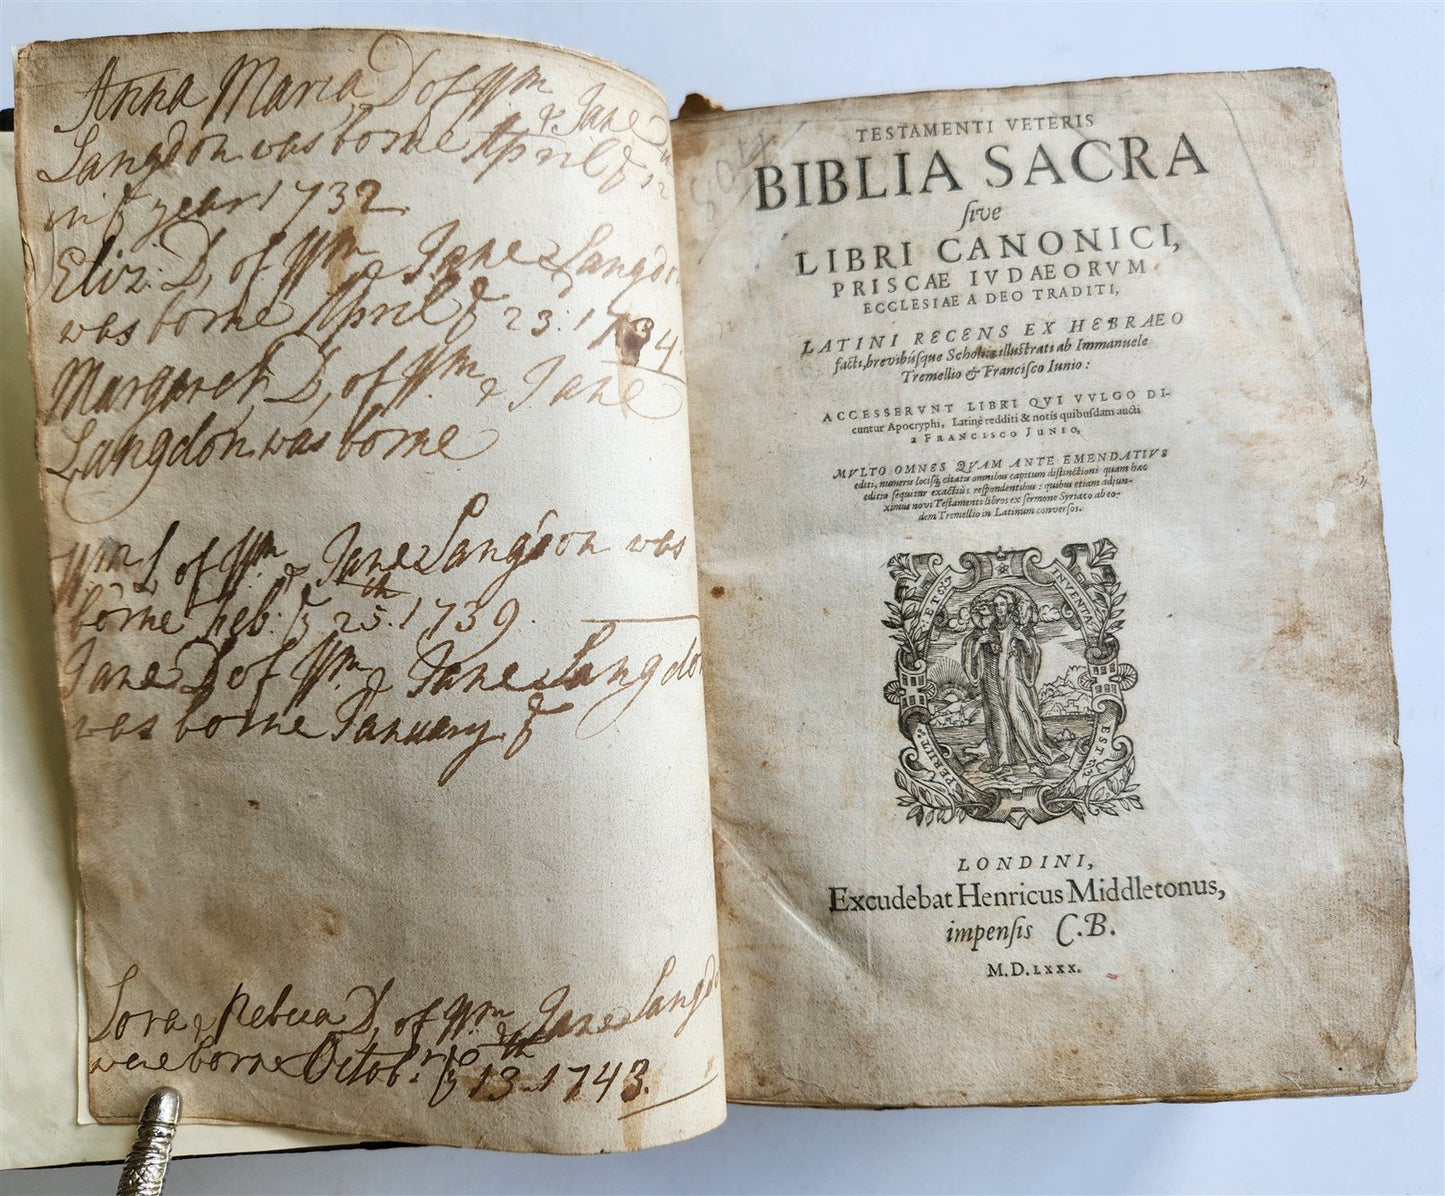 Anna Maria D of Wm & Jane
Langdon was borne April ye 12
in ye year 1732.
Eliz: D, of Wm & Jane Langdon
was borne April ye 23: 1734.
Margaret D, of Wm & Jane
Langdon was borne
Wm L of Wm & Jane Langdon was
borne feb: ye 25th. 1739.
Jane D of Wm & Jane Langdon
was borne January ye
Lora & Rebecca D, of Wm & Jane Langdo
were borne Octobr ye 13th 1743.
TESTAMENTI VETERIS
BIBLIA SACRA
ſive
LIBRI CANONICI,
PRISCAE IVDAEORVM
ECCLESIAE A DEO TRADITI,
LATINI RECENS EX HEBRAEO
facti, brevibúſque Scholiis illuſtrati ab Immanuele
Tremellio & Franciſco Iunio:
ACCESSERVNT LIBRI QVI VVLGO DI-
cuntur Apocryphi, Latinè redditi & notis quibuſdam aucti
a FRANCISCO JUNIO,
MVLTO OMNES QVAM ANTE EMENDATIVS
editi, numeris lociſq́; citatis omnibus capitum diſtinctioni quam hæc
editio ſequitur exactiùs reſpondentibus: quibus etiam adjun-
ximus novi Teſtamenti libros ex ſermone Syriaco ab eo-
dem Tremellio in Latinum converſos.
ET OS
INVENTA
PERIIT &
EST
LONDINI,
Excudebat Henricus Middletonus,
impenſis C.B.
M.D.LXXX.